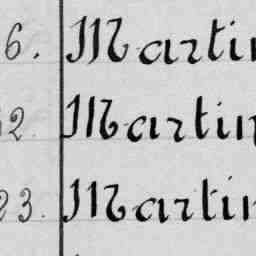 6. Martin
2. Martin
23. Martin